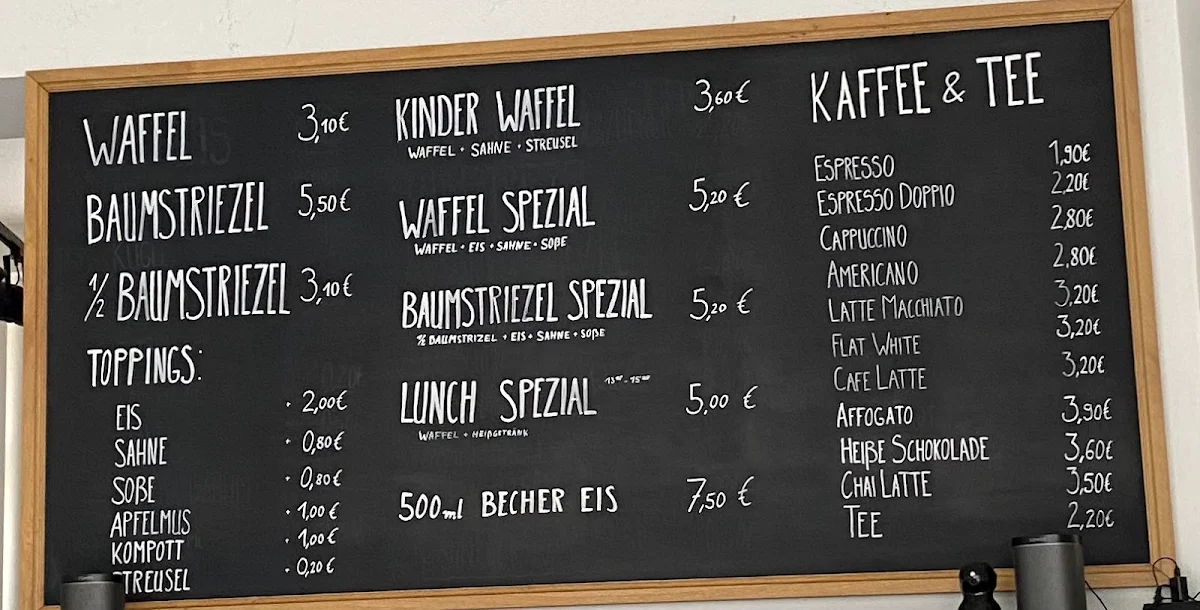 WAFFEL 3,10€
BAUMSTRIEZEL 5,50€
½ BAUMSTRIEZEL 3,10€
TOPPINGS:
EIS · 2,00€
SAHNE · 0,80€
SOßE · 0,80€
APFELMUS · 1,00€
KOMPOTT · 1,00€
STREUSEL · 0,20€
KINDER WAFFEL 3,60€
WAFFEL + SAHNE + STREUSEL
WAFFEL SPEZIAL 5,20€
WAFFEL + EIS + SAHNE + SOßE
BAUMSTRIEZEL SPEZIAL 5,20 €
½ BAUMSTRIZEL + EIS + SAHNE + SOßE
LUNCH SPEZIAL 13°° - 15°° 5,00 €
WAFFEL + HEIßGETRÄNK
500ml BECHER EIS 7,50 €
KAFFEE & TEE
ESPRESSO 1,90€
ESPRESSO DOPPIO 2,20€
CAPPUCCINO 2,80€
AMERICANO 2,80€
LATTE MACCHIATO 3,20€
FLAT WHITE 3,20€
CAFE LATTE 3,20€
AFFOGATO 3,90€
HEIßE SCHOKOLADE 3,60€
CHAI LATTE 3,50€
TEE 2,20€